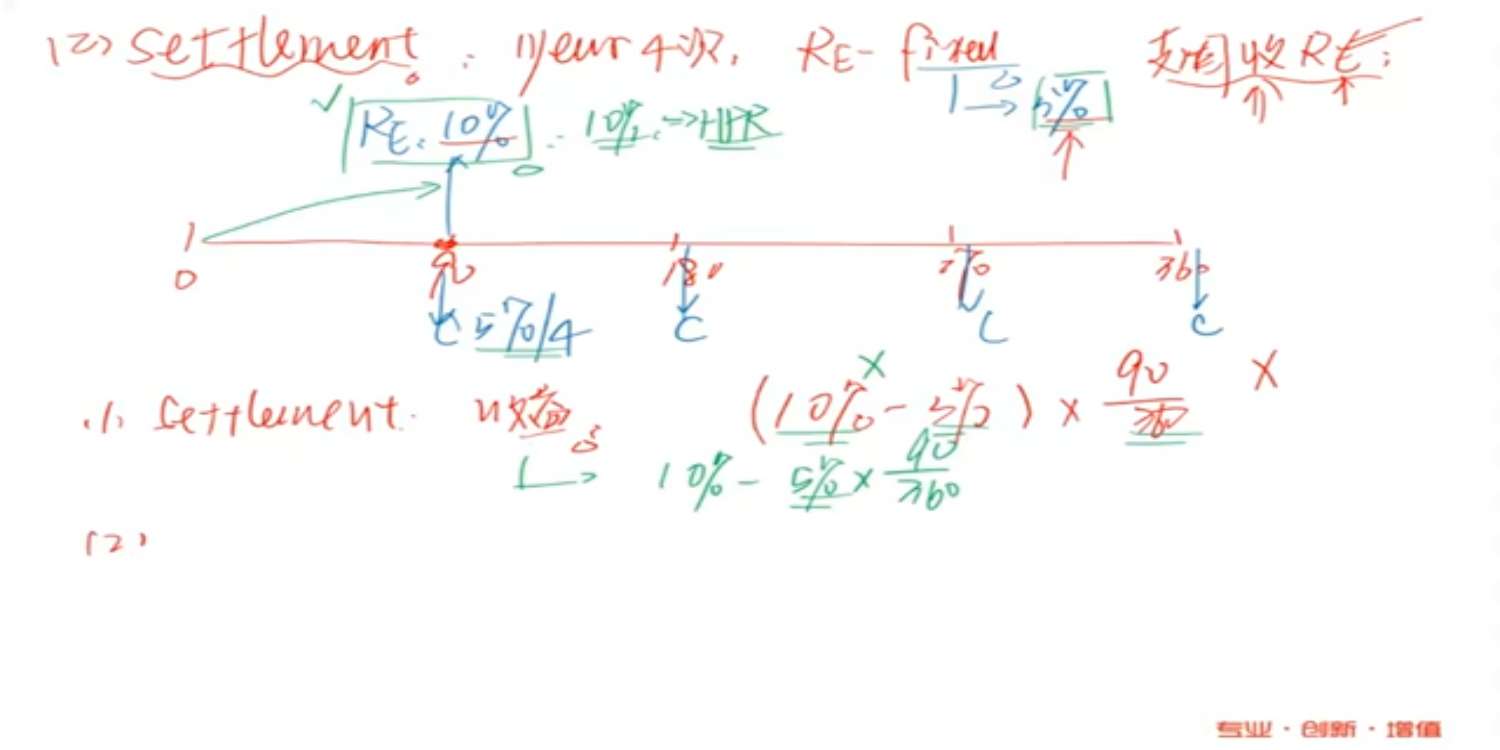 (2) Settlement: 1year 4次, RE - fixed 支固收RE:
RE: 10% : 10% → HPR → 5%
0 90 180 270 360
C 5%/4 C C C
(1) Settlement. 收益 (10% - 5%) × 90/360 ×
×
→ 10% - 5% × 90/360
(2)
专业·创新·增值